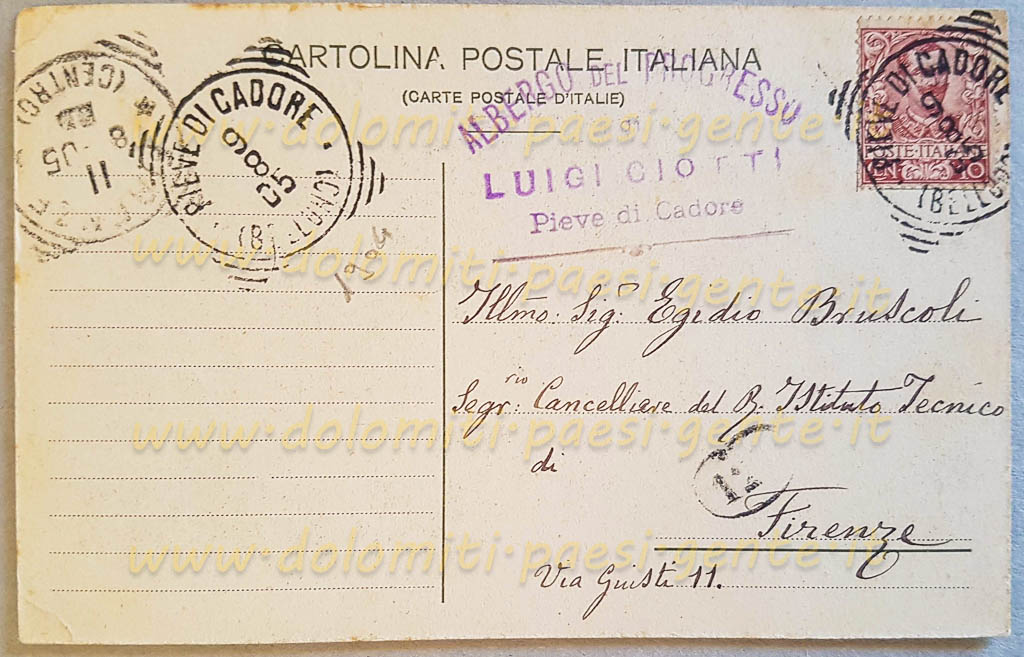 CARTOLINA POSTALE ITALIANA
(CARTE POSTALE D'ITALIE)
ALBERGO DEL PROGRESSO
di
LUIGI GIOTTI
Pieve di Cadore
PIEVE DI CADORE
9 8 05
(BELLUNO)
PIEVE DI CADORE
9 8 05
(BELLUNO)
POSTE ITALIANE
CEN 10
(CENTRO)
11
8 05
Illmo. Sig.o Egidio Bruscoli
Segrrio Cancelliere del R. Istituto Tecnico
di
12
Firenze
Via Giusti 11.
www.dolomiti-paesi-gente.it
www.dolomiti-paesi-gente.it
www.dolomiti-paesi-gente.it
www.dolomiti-paesi-gente.it